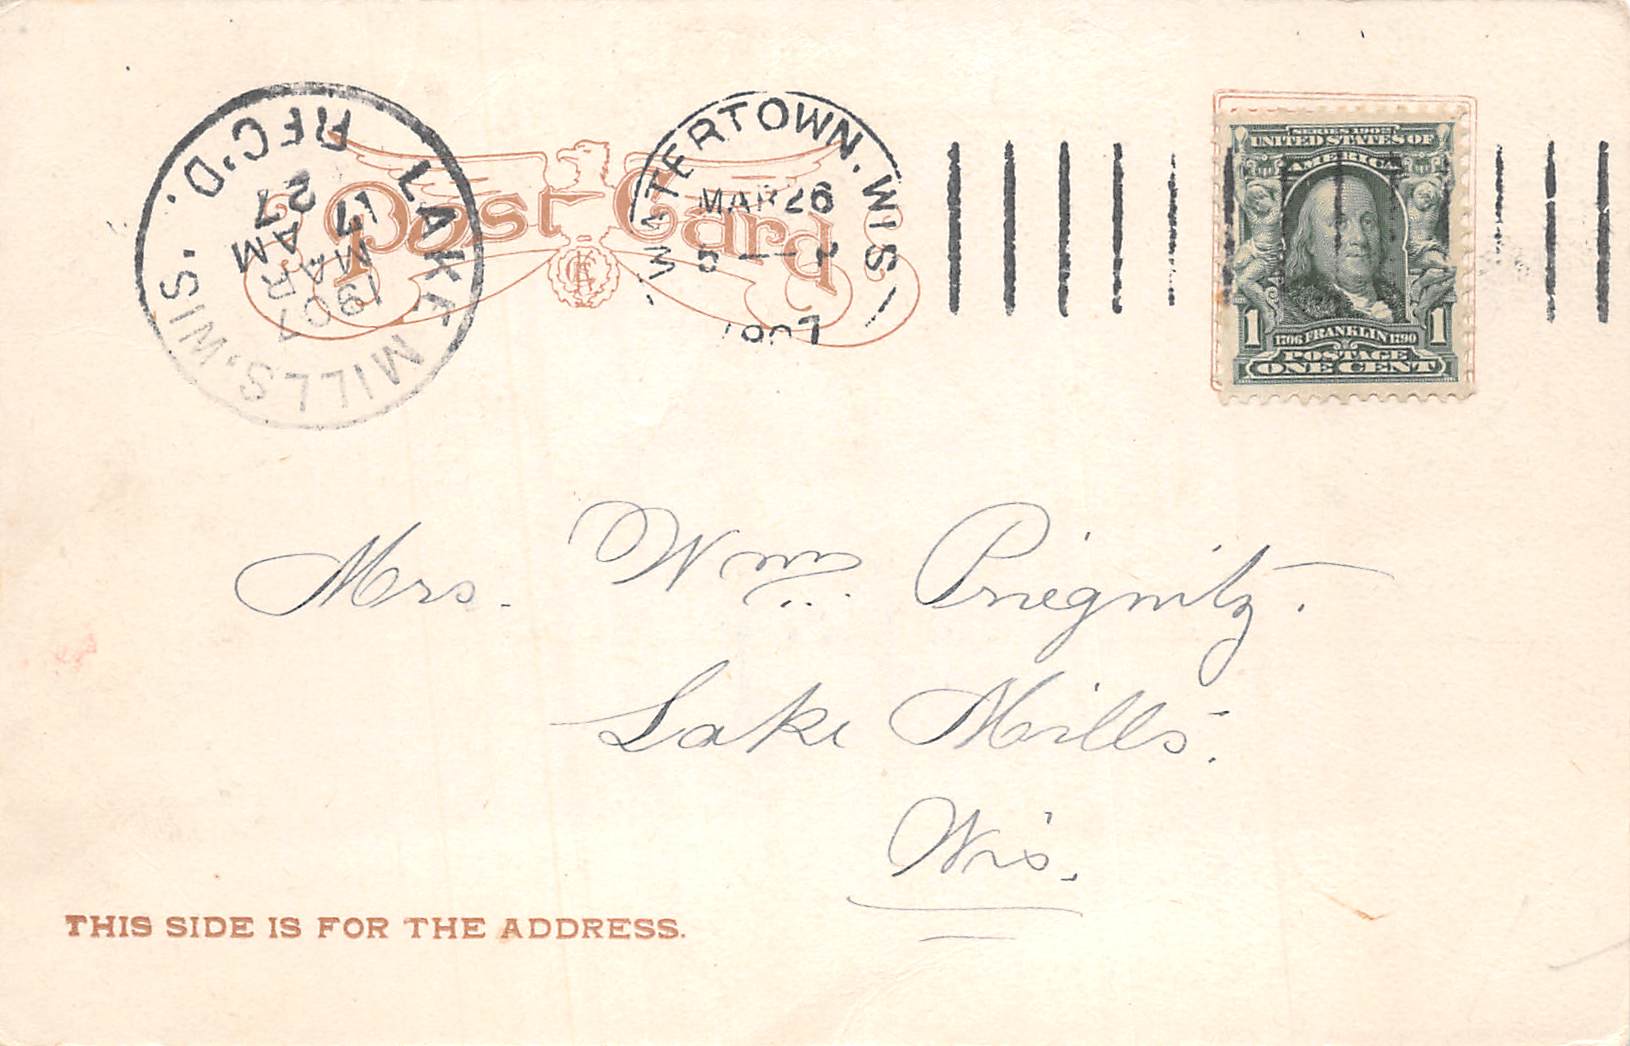 LAKE MILLS, WIS.
REC'D.
27
AM
17
MAR
1907
Post Card
WATERTOWN, WIS
MAR 26
1907
SERIES 1902
UNITED STATES OF
AMERICA
1 1706 FRANKLIN 1790 1
POSTAGE
ONE CENT
Mrs. Wm. Priegnitz.
Lake Mills,
Wis.
THIS SIDE IS FOR THE ADDRESS.